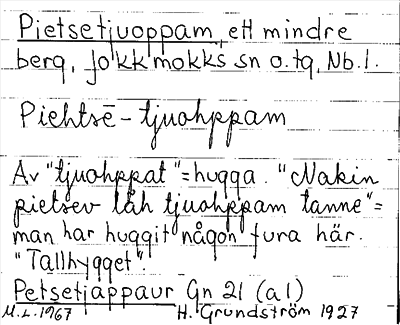 Pietsetjuoppam, ett mindre
berg, Jokkmokks sn o. tg, Nb. l.
Piehtsē-tjuohppam
Av "tjuohppat" = hugga. "Nakin
pietsev läh tjuohppam tanne" =
man har huggit någon fura här.
"Tallhygget".
Petsetjappaur Gn 21 (a1)
M.L. 1967 H. Grundström 1927